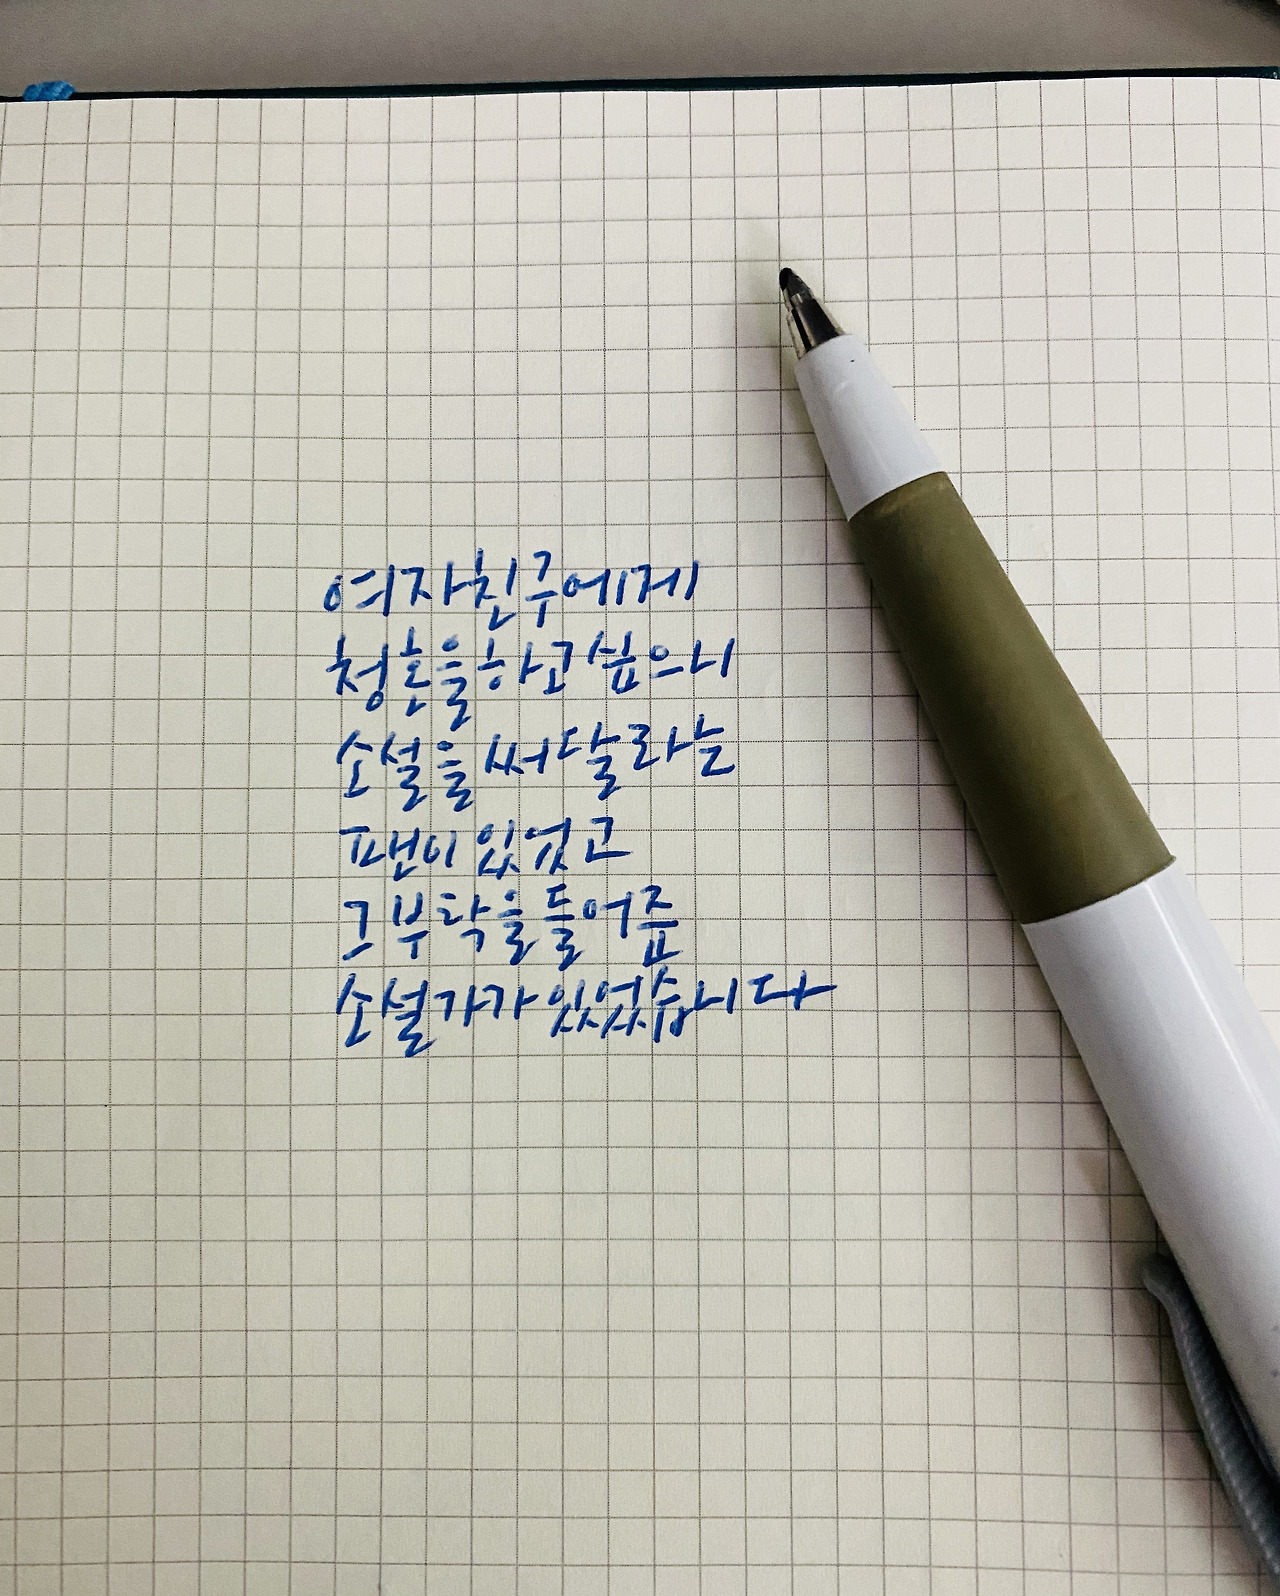 여자친구에게
청혼을 하고 싶으니
소설을 써 달라는
팬이 있었고
그 부탁을 들어준
소설가가 있었습니다